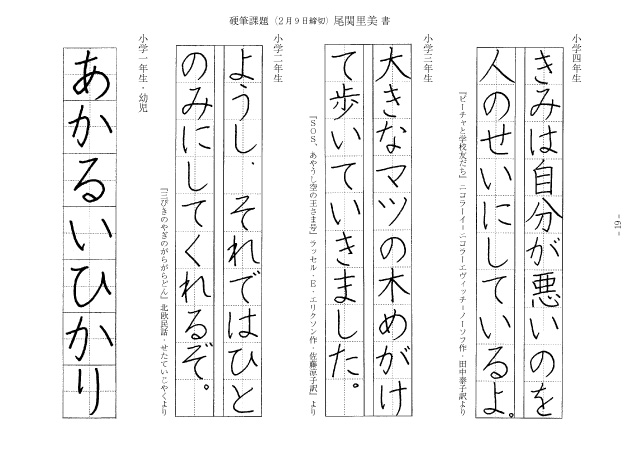 硬筆課題(2月9日締切)尾関里美 書
小学四年生
きみは自分が悪いのを
人のせいにしているよ。
『ビーチャと学校友だち』ニコラーイ=ニコラーエヴィッチ=ノーソフ作・田中泰子訳より
小学三年生
大きなマツの木めがけ
て歩いていきました。
『SOS、あやうし空の王さま号』ラッセル・E・エリクソン作・佐藤凉子訳』より
小学二年生
ようし、それではひと
のみにしてくれるぞ。
『三びきのやぎのがらがらどん』北欧民話・せたていじやくより
小学一年生・幼児
あかるいひかり
- 19 -